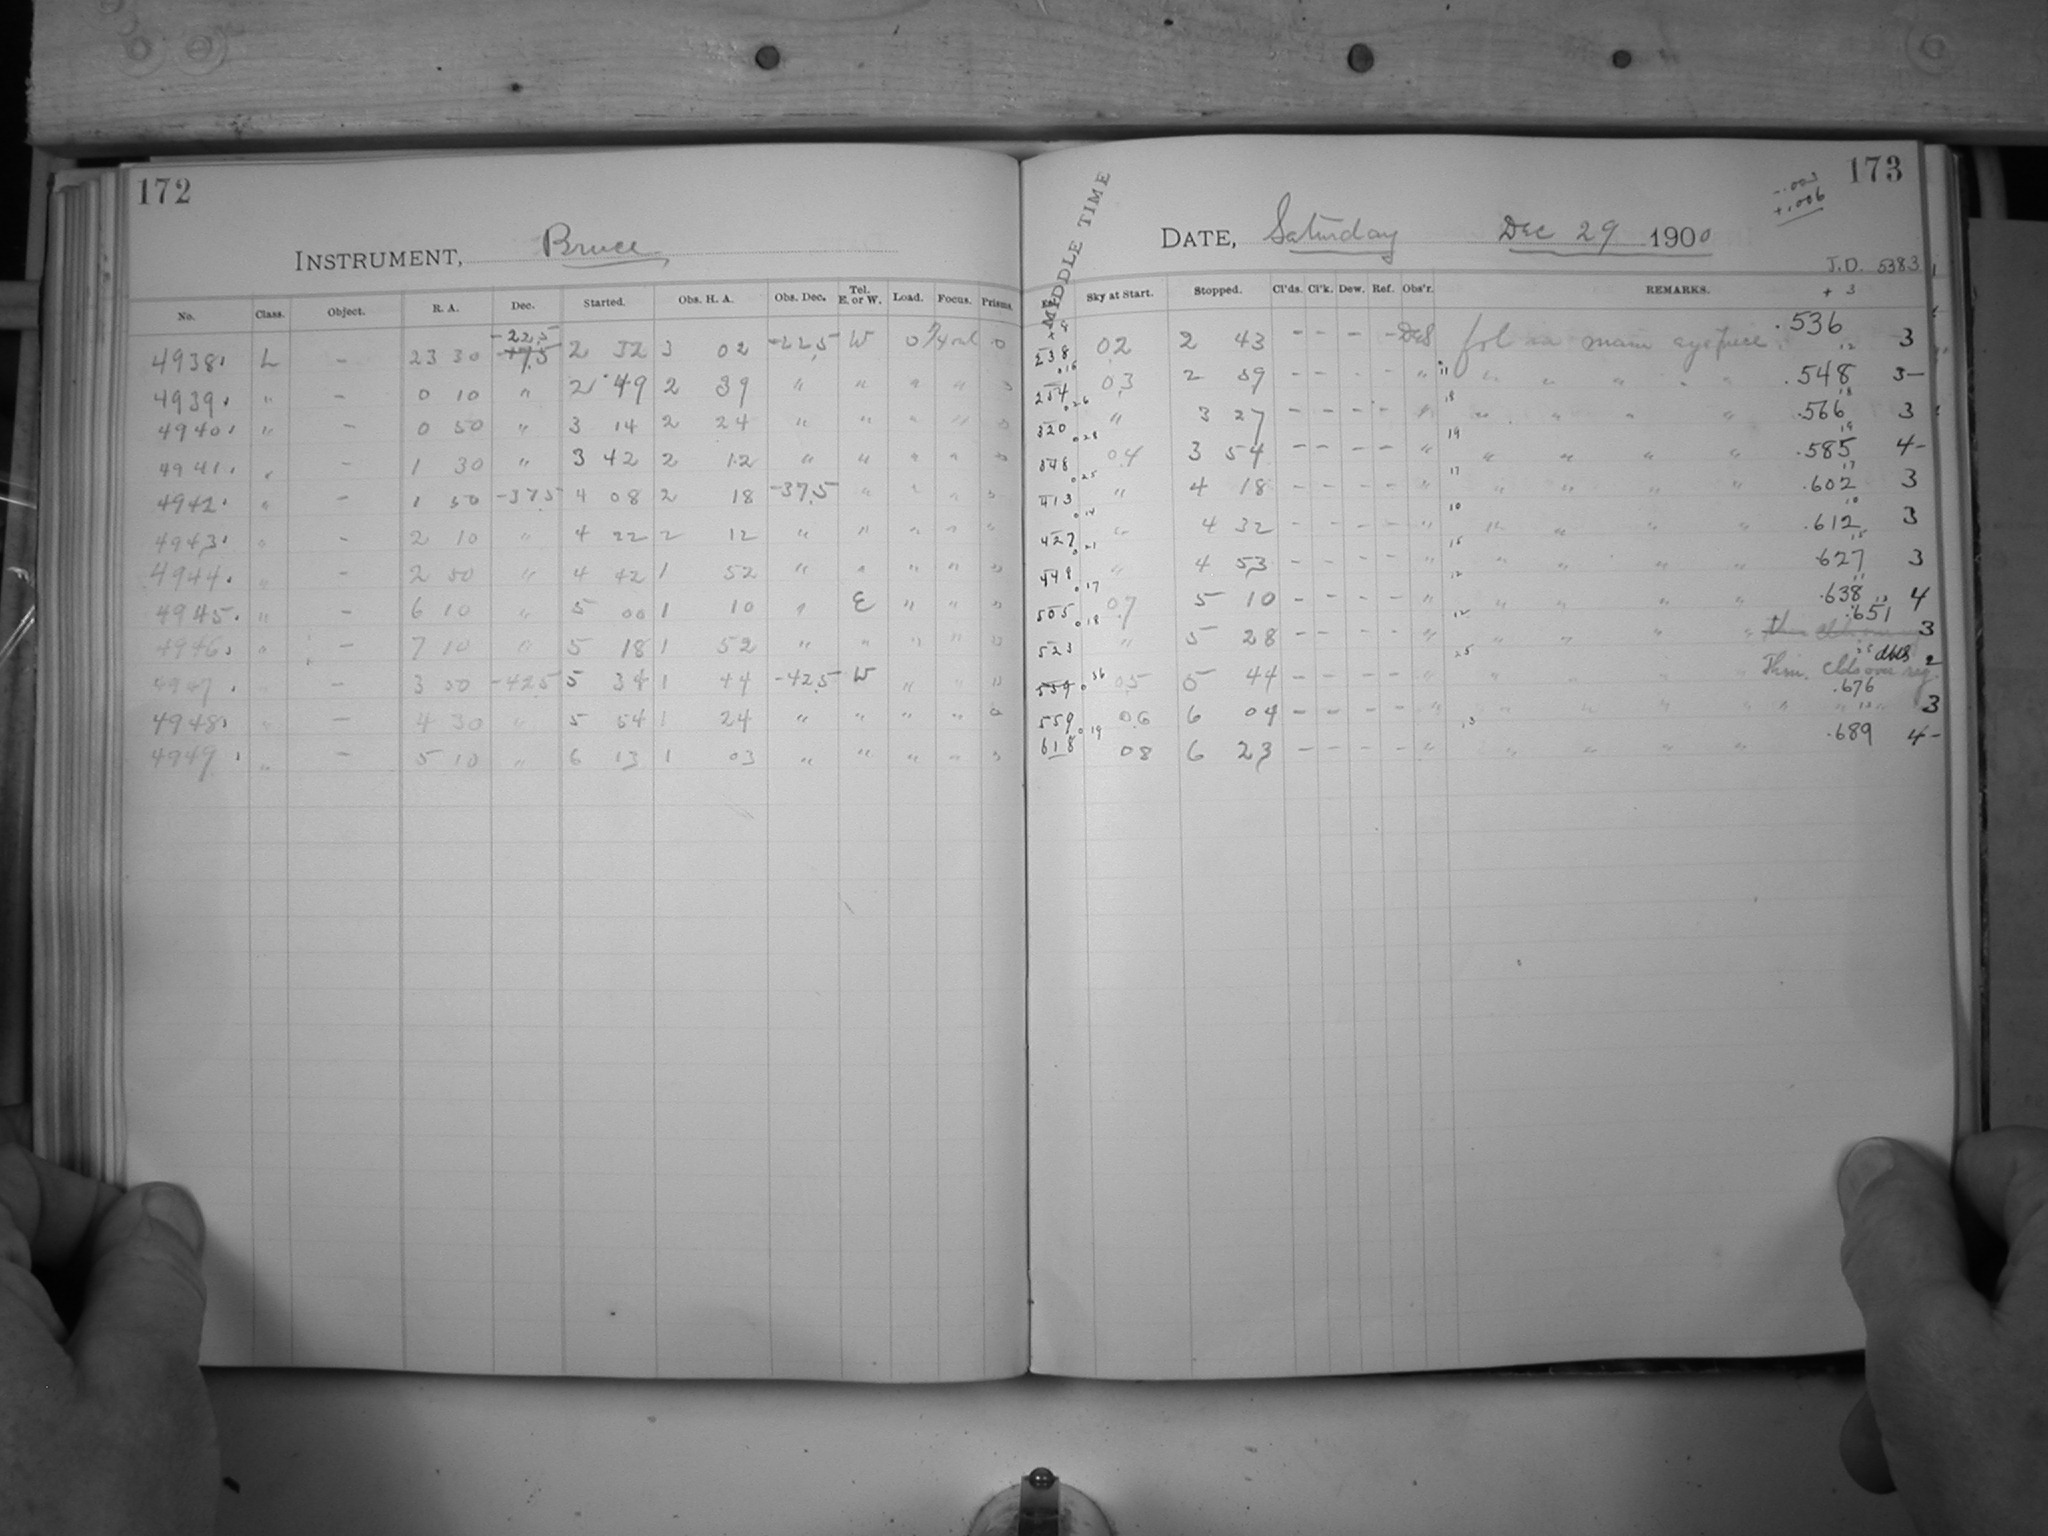 172
INSTRUMENT, Bruce
No. Class. Object. R. A. Dec. Started. Obs. H. A. Obs. Dec. Tel. E. or W. Load. Focus. Prisms.
4938. L – 23 30 -22.5 2 32 3 02 -22.5 W 0
4939. " – 0 10 " 2 49 2 39 " " " "
4940. " – 0 50 " 3 14 2 24 " " " "
4941. " – 1 30 " 3 42 2 12 " " " "
4942. " – 1 50 -37.5 4 08 2 18 -37.5 " " "
4943. " – 2 10 " 4 22 2 12 " " " " "
4944. " – 2 50 " 4 42 1 52 " " " " "
4945. " – 6 10 " 5 00 1 10 " E " " "
4946. " – 7 10 " 5 18 1 52 " " " " "
4947. " – 3 50 -42.5 5 34 1 44 -42.5 W " " "
4948. " – 4 30 " 5 54 1 24 " " " "
4949. " – 5 10 " 6 13 1 03 " " " " "
173
-.003
+.006
MIDDLE TIME
DATE, Saturday Dec 29 1900
J.D. 5383
+ 3
Sky at Start. Stopped. Cl'ds. Cl'k. Dew. Ref. Obs'r. REMARKS.
238 02 2 43 – – – – fol in main eyepiece. .536 3
254 03 2 59 – – – – " " " " " .548 3–
320 " 3 27 – – – – " " " " .566 3
348 04 3 54 – – – – " " " " " .585 4–
413 " 4 18 – – – – " " " " " .602 3
427 " 4 32 – – – – " " " " " .612 3
448 " 4 53 – – – – " " " " " .627 3
505 07 5 10 – – – – " " " " " .638 4
523 " 5 28 – – – – " " " " " .651 3
539 05 5 44 – – – – " " " " " Thin clds over reg. 2
559 06 6 04 – – – – " " " " " .676 3
618 08 6 23 – – – – " " " " " .689 4–